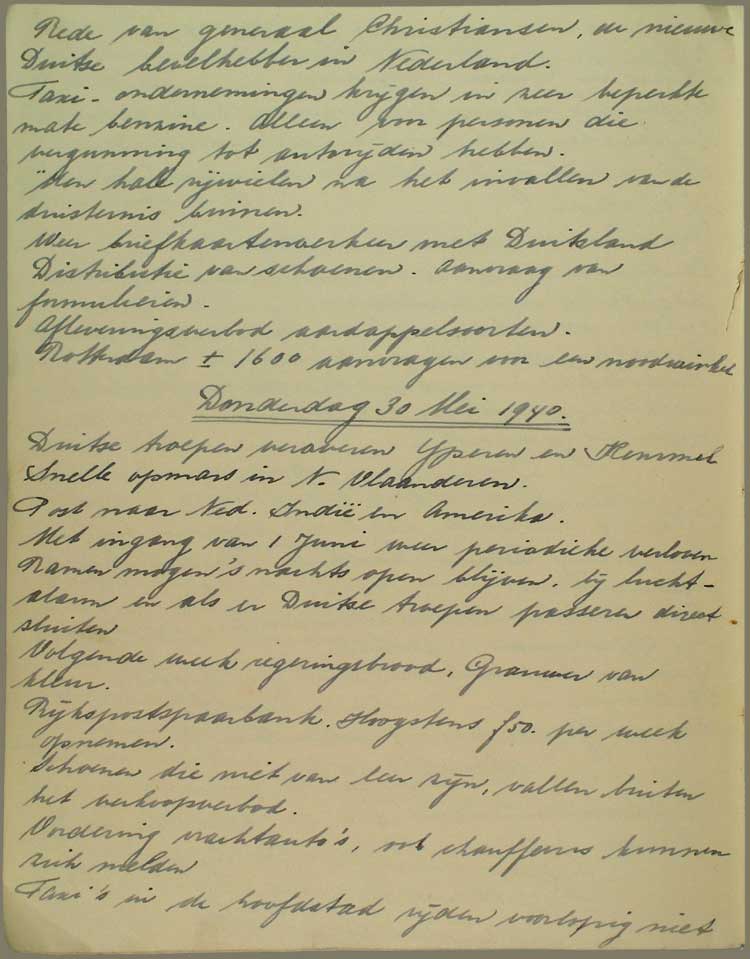 Rede van generaal Christiansen, de nieuwe
Duitse bevelhebber in Nederland.
Taxi-ondernemingen krijgen in zeer beperkte
mate benzine. Alleen voor personen die
vergunning tot autorijden hebben.
Men hale rijwielen na het invallen van de
duisternis binnen.
Weer briefkaartenverkeer met Duitsland
Distributie van schoenen. Aanvraag van
formulieren.
Afleveringsverbod aardappelsoorten.
Rotterdam ± 1600 aanvragen voor een noodwinkel
Donderdag 30 Mei 1940.
Duitse troepen veroveren Yperen en Kemmel
Snelle opmars in N. Vlaanderen.
Post naar Ned. Indië en Amerika.
Met ingang van 1 Juni weer periodieke verloven
Ramen mogen 's nachts open blijven, bij lucht-
alarm en als er Duitse troepen passeren direct
sluiten
Volgende week regeringsbrood, Grauwer van
kleur.
Rijkspostspaarbank. Hoogstens f50. per week
opnemen.
Schoenen die niet van leer zijn, vallen buiten
het verkoopverbod.
Vordering vrachtauto's, ook chauffeurs kunnen
zich melden
Taxi's in de hoofdstad rijden voorlopig niet